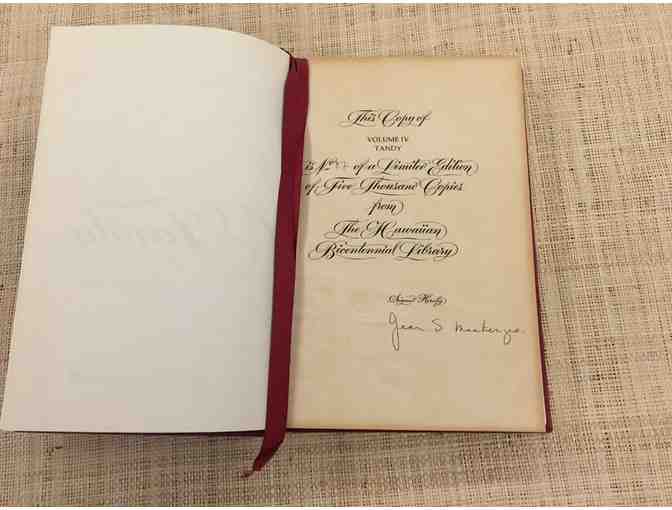 This Copy of
VOLUME IV
TANDY
is of a Limited Edition
of Five Thousand Copies
from
The Hawaiian
Bicentennial Library
Jean S Mackenzie